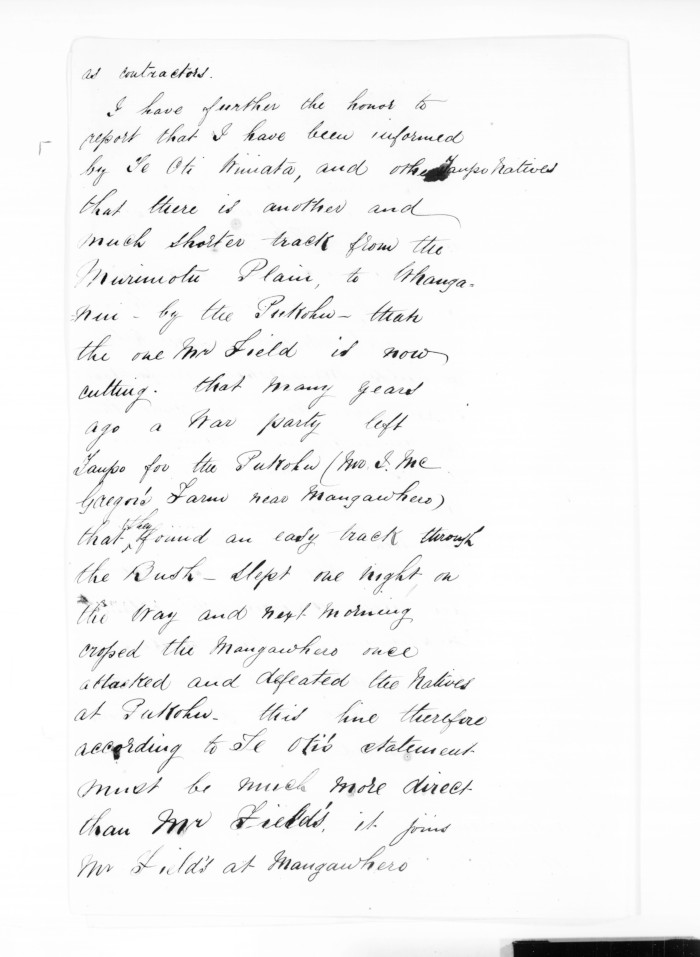 as contractors.
I have further the honor to
report that I have been informed
by Te Oti Wimata, and other Taupo Natives
that there is another and
much shorter track from the
Murimotu Plain, to Whanga-
nui - by the Pukohu - than
the one Mr Field is now
cutting. that many years
ago a War party left
Taupo for the Pukohu (Mr. J. Mc
Gregor's Farm near Mangawhero)
that they found an easy track through
the Bush - Slept one night on
the way and next morning
crossed the Mangawhero once
attacked and defeated the Natives
at Pukohu - this line therefore
according to Te Oti's statement
must be much more direct
than Mr Field's, it joins
Mr Field's at Mangawhero